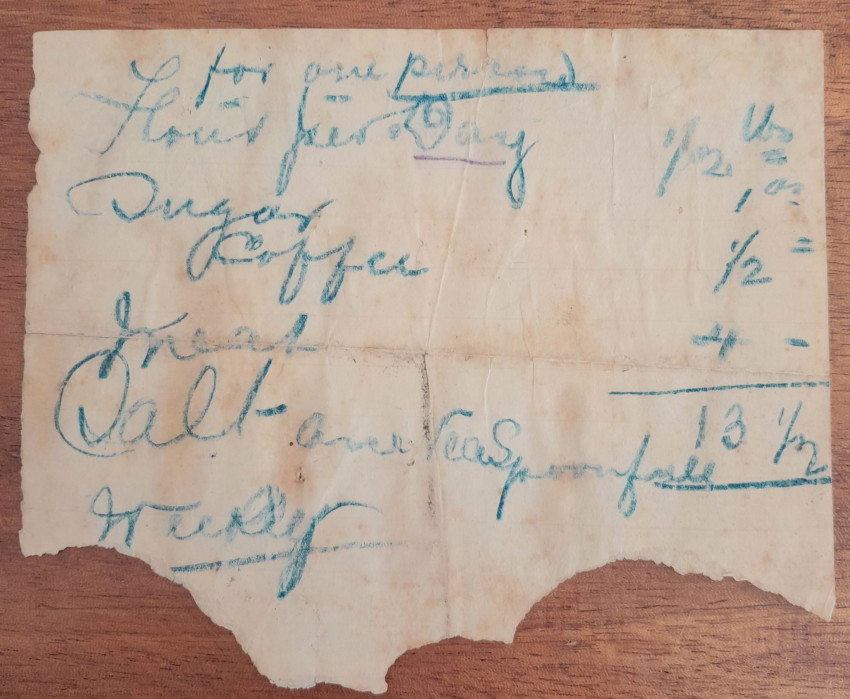 for one person
Flour per Day 1/2 lbs
Sugar 1 oz
Coffee 1/2 =
Meat 4 -
13 1/2
Salt one TeaSpoonfull
Weekly